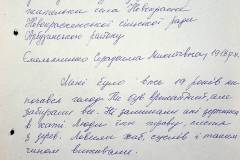 жителька села Новокрасне
Новокраснянської сільської ради
Арбузинського району
Ємельяненко Серафима Микитівна, 1918р.н.
Мені було вже 14 років як
почався голод. Не був врожайний, але
забирали все. Не залишали ані зернини
в хаті. Люди їли траву, листя
з дерев. Ловили жаб, ховрахів і таким
чином виживали.